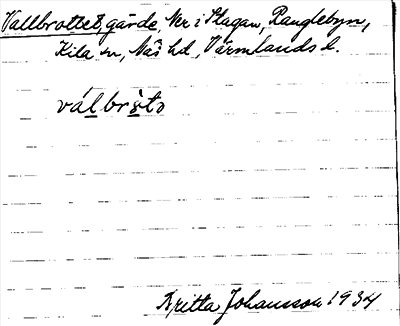 Vallbrottet, gärde, Ner i Hagan, Ranglebyn,
Kila sn, Näs hd, Värmlands l.
válbròtə
Britta Johansson 1934